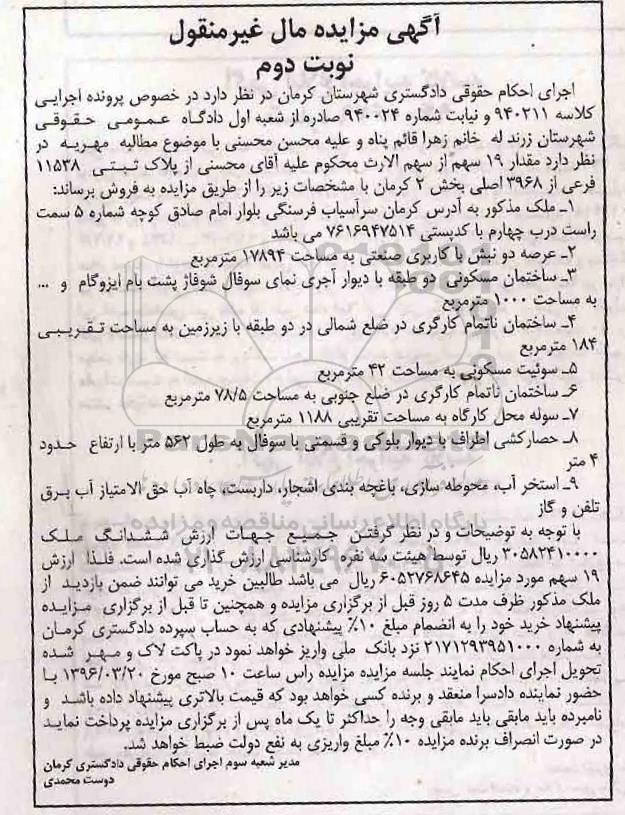 آگهی مزایده مال غیرمنقول
نوبت دوم
اجرای احکام حقوقی دادگستری شهرستان کرمان در نظر دارد در خصوص پرونده اجرایی
کلاسه ۹۴۰۲۱۱ و نیابت شماره ۹۴۰۰۲۴ صادره از شعبه اول دادگاه عمومی حقوقی
شهرستان زرند له خانم زهرا قائم پناه و علیه محسن محسنی با موضوع مطالبه مهریه در
نظر دارد مقدار ۱۹ سهم از سهم الارث محکوم علیه آقای محسنی از پلاک ثبتی ۱۱۵۳۸
فرعی از ۳۹۶۸ اصلی بخش ۲ کرمان با مشخصات زیر را از طریق مزایده به فروش برساند:
۱ـ ملک مذکور به آدرس کرمان سرآسیاب فرسنگی بلوار امام صادق کوچه شماره ۵ سمت
راست درب چهارم با کدپستی ۷۶۱۶۹۴۷۵۱۴ می باشد
۲ـ عرصه دو نبش با کاربری صنعتی به مساحت ۱۷۸۹۴ مترمربع
۳ـ ساختمان مسکونی دو طبقه با دیوار آجری نمای سوفال شوفاژ پشت بام ایزوگام و ...
به مساحت ۱۰۰۰ مترمربع
۴ـ ساختمان ناتمام کارگری در ضلع شمالی در دو طبقه با زیرزمین به مساحت تقریبی
۱۸۴ مترمربع
۵ـ سوئیت مسکونی به مساحت ۴۲ مترمربع
۶ـ ساختمان ناتمام کارگری در ضلع جنوبی به مساحت ۷۸/۵ مترمربع
۷ـ سوله محل کارگاه به مساحت تقریبی ۱۱۸۸ مترمربع
۸ـ حصارکشی اطراف با دیوار بلوکی و قسمتی با سوفال به طول ۵۶۲ متر با ارتفاع حدود
۴ متر
۹ـ استخر آب، محوطه سازی، باغچه بندی اشجار، داربست، چاه آب حق الامتیاز آب برق
تلفن و گاز
با توجه به توضیحات و در نظر گرفتن جمیع جهات ارزش ششدانگ ملک
۳۰۵۸۲۴۱۰۰۰۰ ریال توسط هیئت سه نفره کارشناسی ارزش گذاری شده است. فلذا ارزش
۱۹ سهم مورد مزایده ۶۰۵۲۷۶۸۶۴۵ ریال می باشد طالبین خرید می توانند ضمن بازدید از
ملک مذکور ظرف مدت ۵ روز قبل از برگزاری مزایده و همچنین تا قبل از برگزاری مزایده
پیشنهاد خرید خود را به انضمام مبلغ ۱۰٪ پیشنهادی که به حساب سپرده دادگستری کرمان
به شماره ۲۱۷۱۲۹۳۹۵۱۰۰۰ نزد بانک ملی واریز خواهد نمود در پاکت لاک و مهر شده
تحویل اجرای احکام نمایند جلسه مزایده مزایده راس ساعت ۱۰ صبح مورخ ۱۳۹۶/۰۳/۲۰ با
حضور نماینده دادسرا منعقد و برنده کسی خواهد بود که قیمت بالاتری پیشنهاد داده باشد و
نامبرده باید مابقی باید مابقی وجه را حداکثر تا یک ماه پس از برگزاری مزایده پرداخت نماید
در صورت انصراف برنده مزایده ۱۰٪ مبلغ واریزی به نفع دولت ضبط خواهد شد.
مدیر شعبه سوم اجرای احکام حقوقی دادگستری کرمان
دوست محمدی
پایگاه اطلاع رسانی مناقصه و مزایده